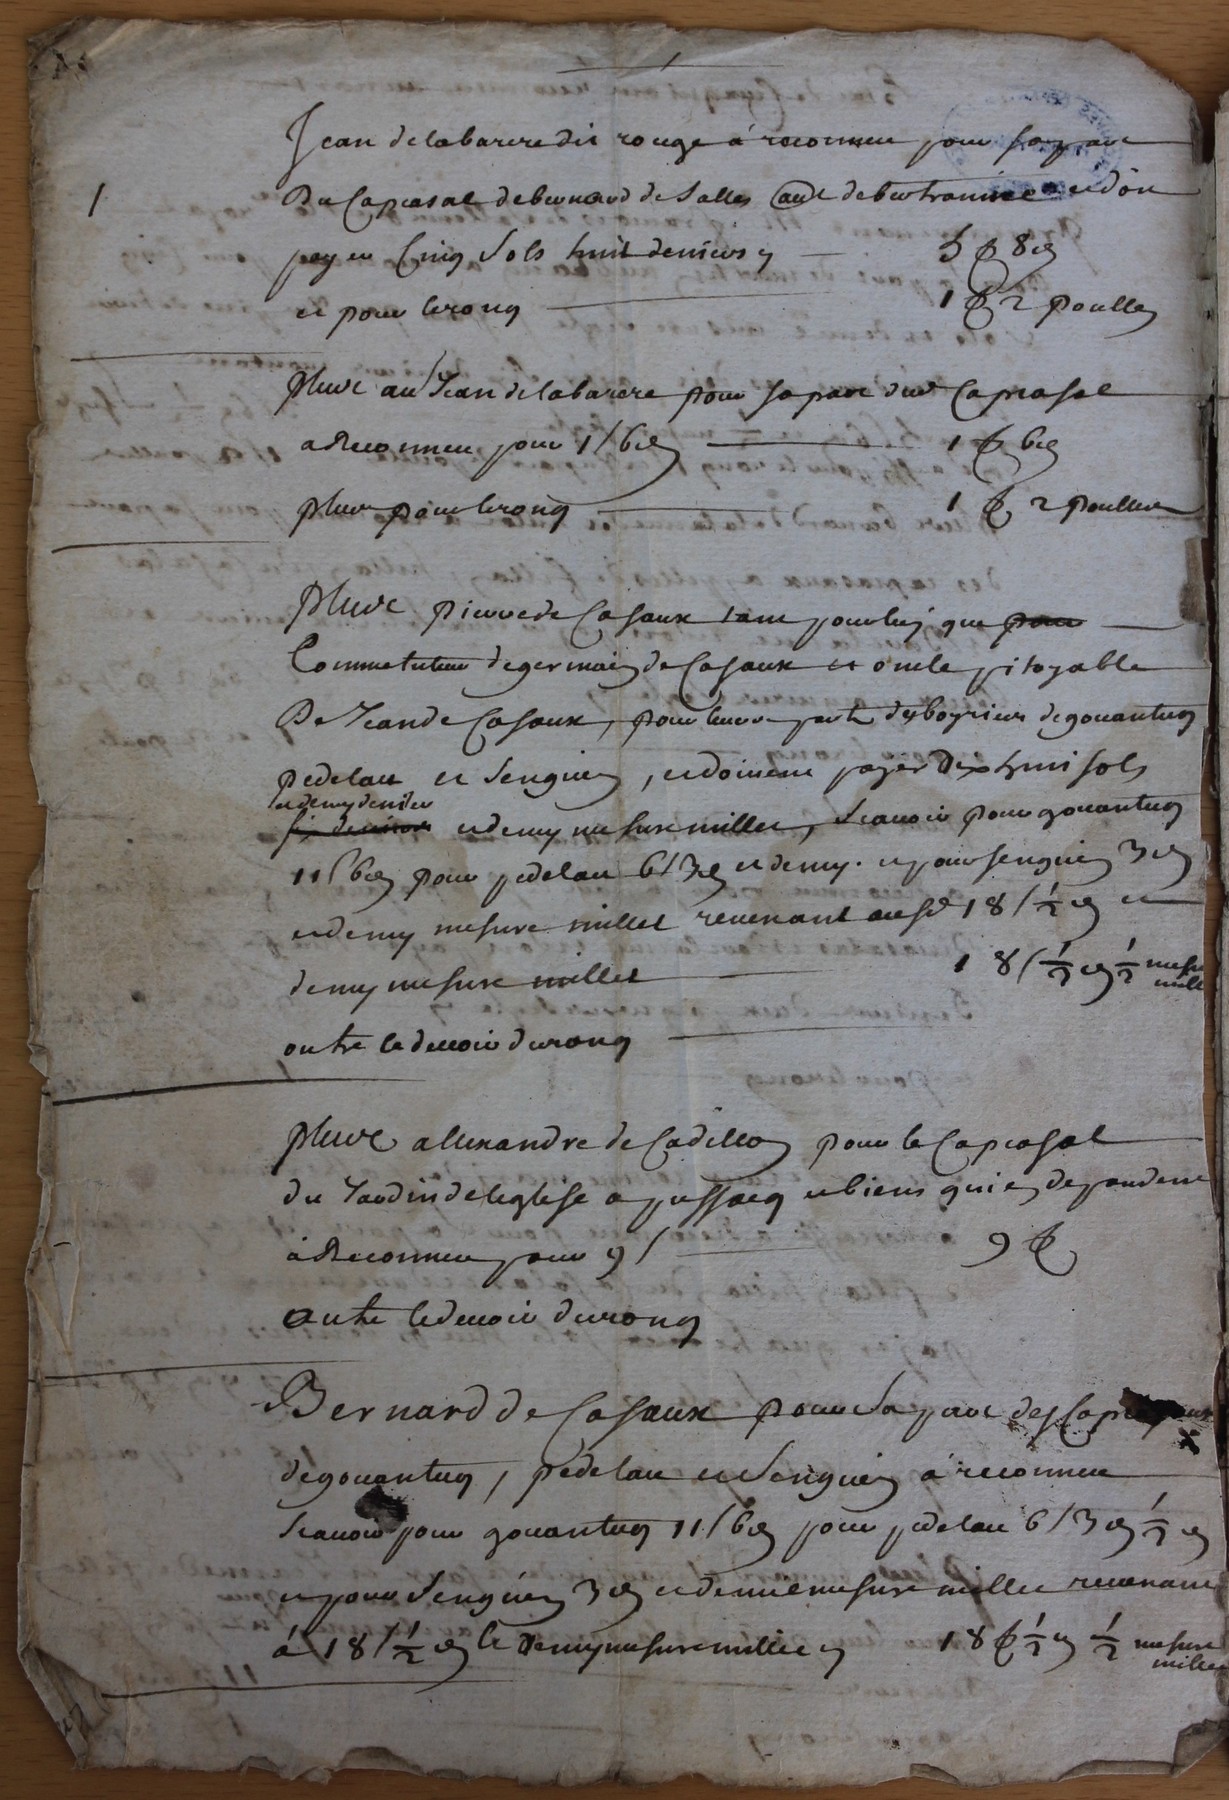 1
Jean de labarere dit rouge à reconneu pour sa part
1
Du Capcasal de bernard de Salles et don
paye Cinq sols huit deniers 5 s 8 d
et pour lerong 1 s 2 poulles
pluus au Jean de labarere pour sa part dud Capcasal
a Reconneu pour 1 s 6 d 1 s 6 d
plus pour lerong 1 s 2 poulles
pluus pierre de Casaux tant pour luy que pour
Comme tuteur de germain de Casaux et oncle pitoyable
De Jean de Casaux, pour leur parts des boyries de gouantucq
pedelau et Senguin, et doivent payer Dix huit sols
et demy denier
six deniers et demy mesure millet, scauoir pour gouantucq
11 s 6 d pour pedelau 6 s 3 d et demy. et pour senguin 3 d
et demy mesure millet reuenant ausd 18 s 1/2 d et
demy mesure millet 18 s 1/2 d 1/2 mesure
millet
outre le deuoir durong
pluus allexandre de Cadillon pour le Capcasal
du Jardin de leglise a pussacq et biens qui en dependent
à Reconneu pour 9 s 9 s
outre le deuoir durong
Bernard de Casaux pour Sa part des
de gouantucq, pedelau et Senguin à reconneu
scauoir pour gouantucq 11 s 6 d pour pedelau 6 s 3 d 1/2 d
et pour Senguin 3 d et demie mesure millet reuenant
à 18 s 1/2 d et demy mesure millet 18 s 1/2 d 1/2 mesure
millet